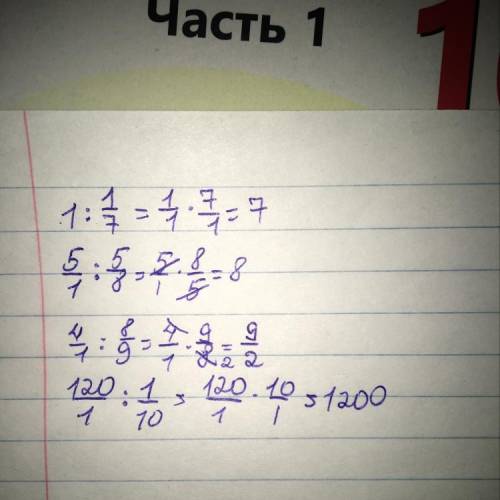 Часть 1
1
1 : 1/7 = 1/1 · 7/1 = 7
5/1 : 5/8 = 5/1 · 8/5 = 8
4/1 : 8/9 = 4/1 · 9/8 2 = 9/2
120/1 : 1/10 = 120/1 · 10/1 = 1200